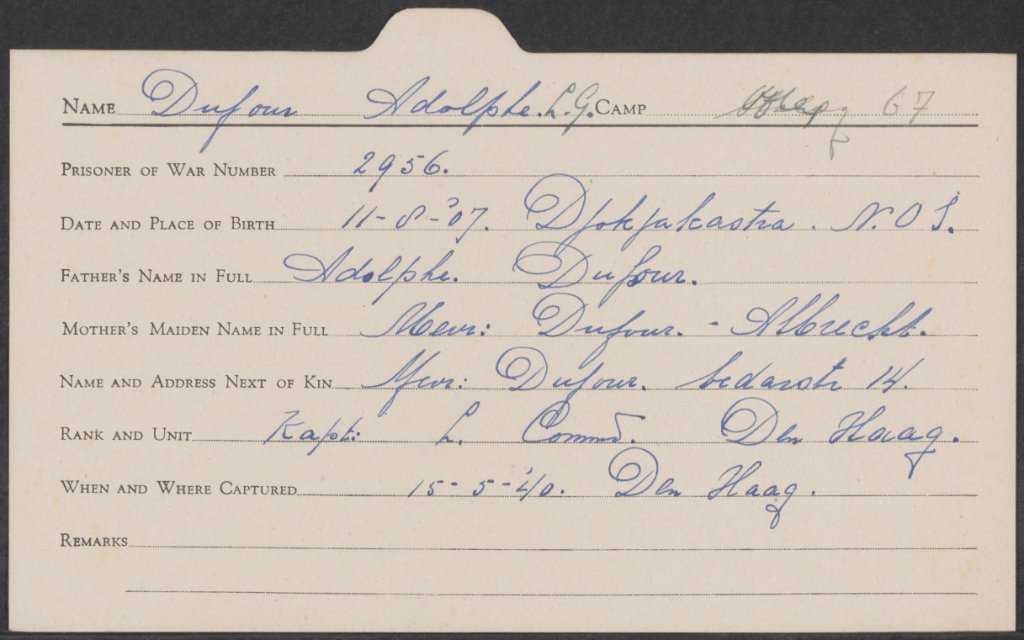 NAME Dufour Adolphe. L.G. CAMP 67
PRISONER OF WAR NUMBER 2956.
DATE AND PLACE OF BIRTH 11-8-'07. Djokjakastra. N.O.I.
FATHER'S NAME IN FULL Adolphe. Dufour.
MOTHER'S MAIDEN NAME IN FULL Mevr: Dufour. - Albrecht.
NAME AND ADDRESS NEXT OF KIN Mevr: Dufour. 14.
RANK AND UNIT Kapt: L. Commd. Den Haag.
WHEN AND WHERE CAPTURED 15-5-'40. Den Haag.
REMARKS